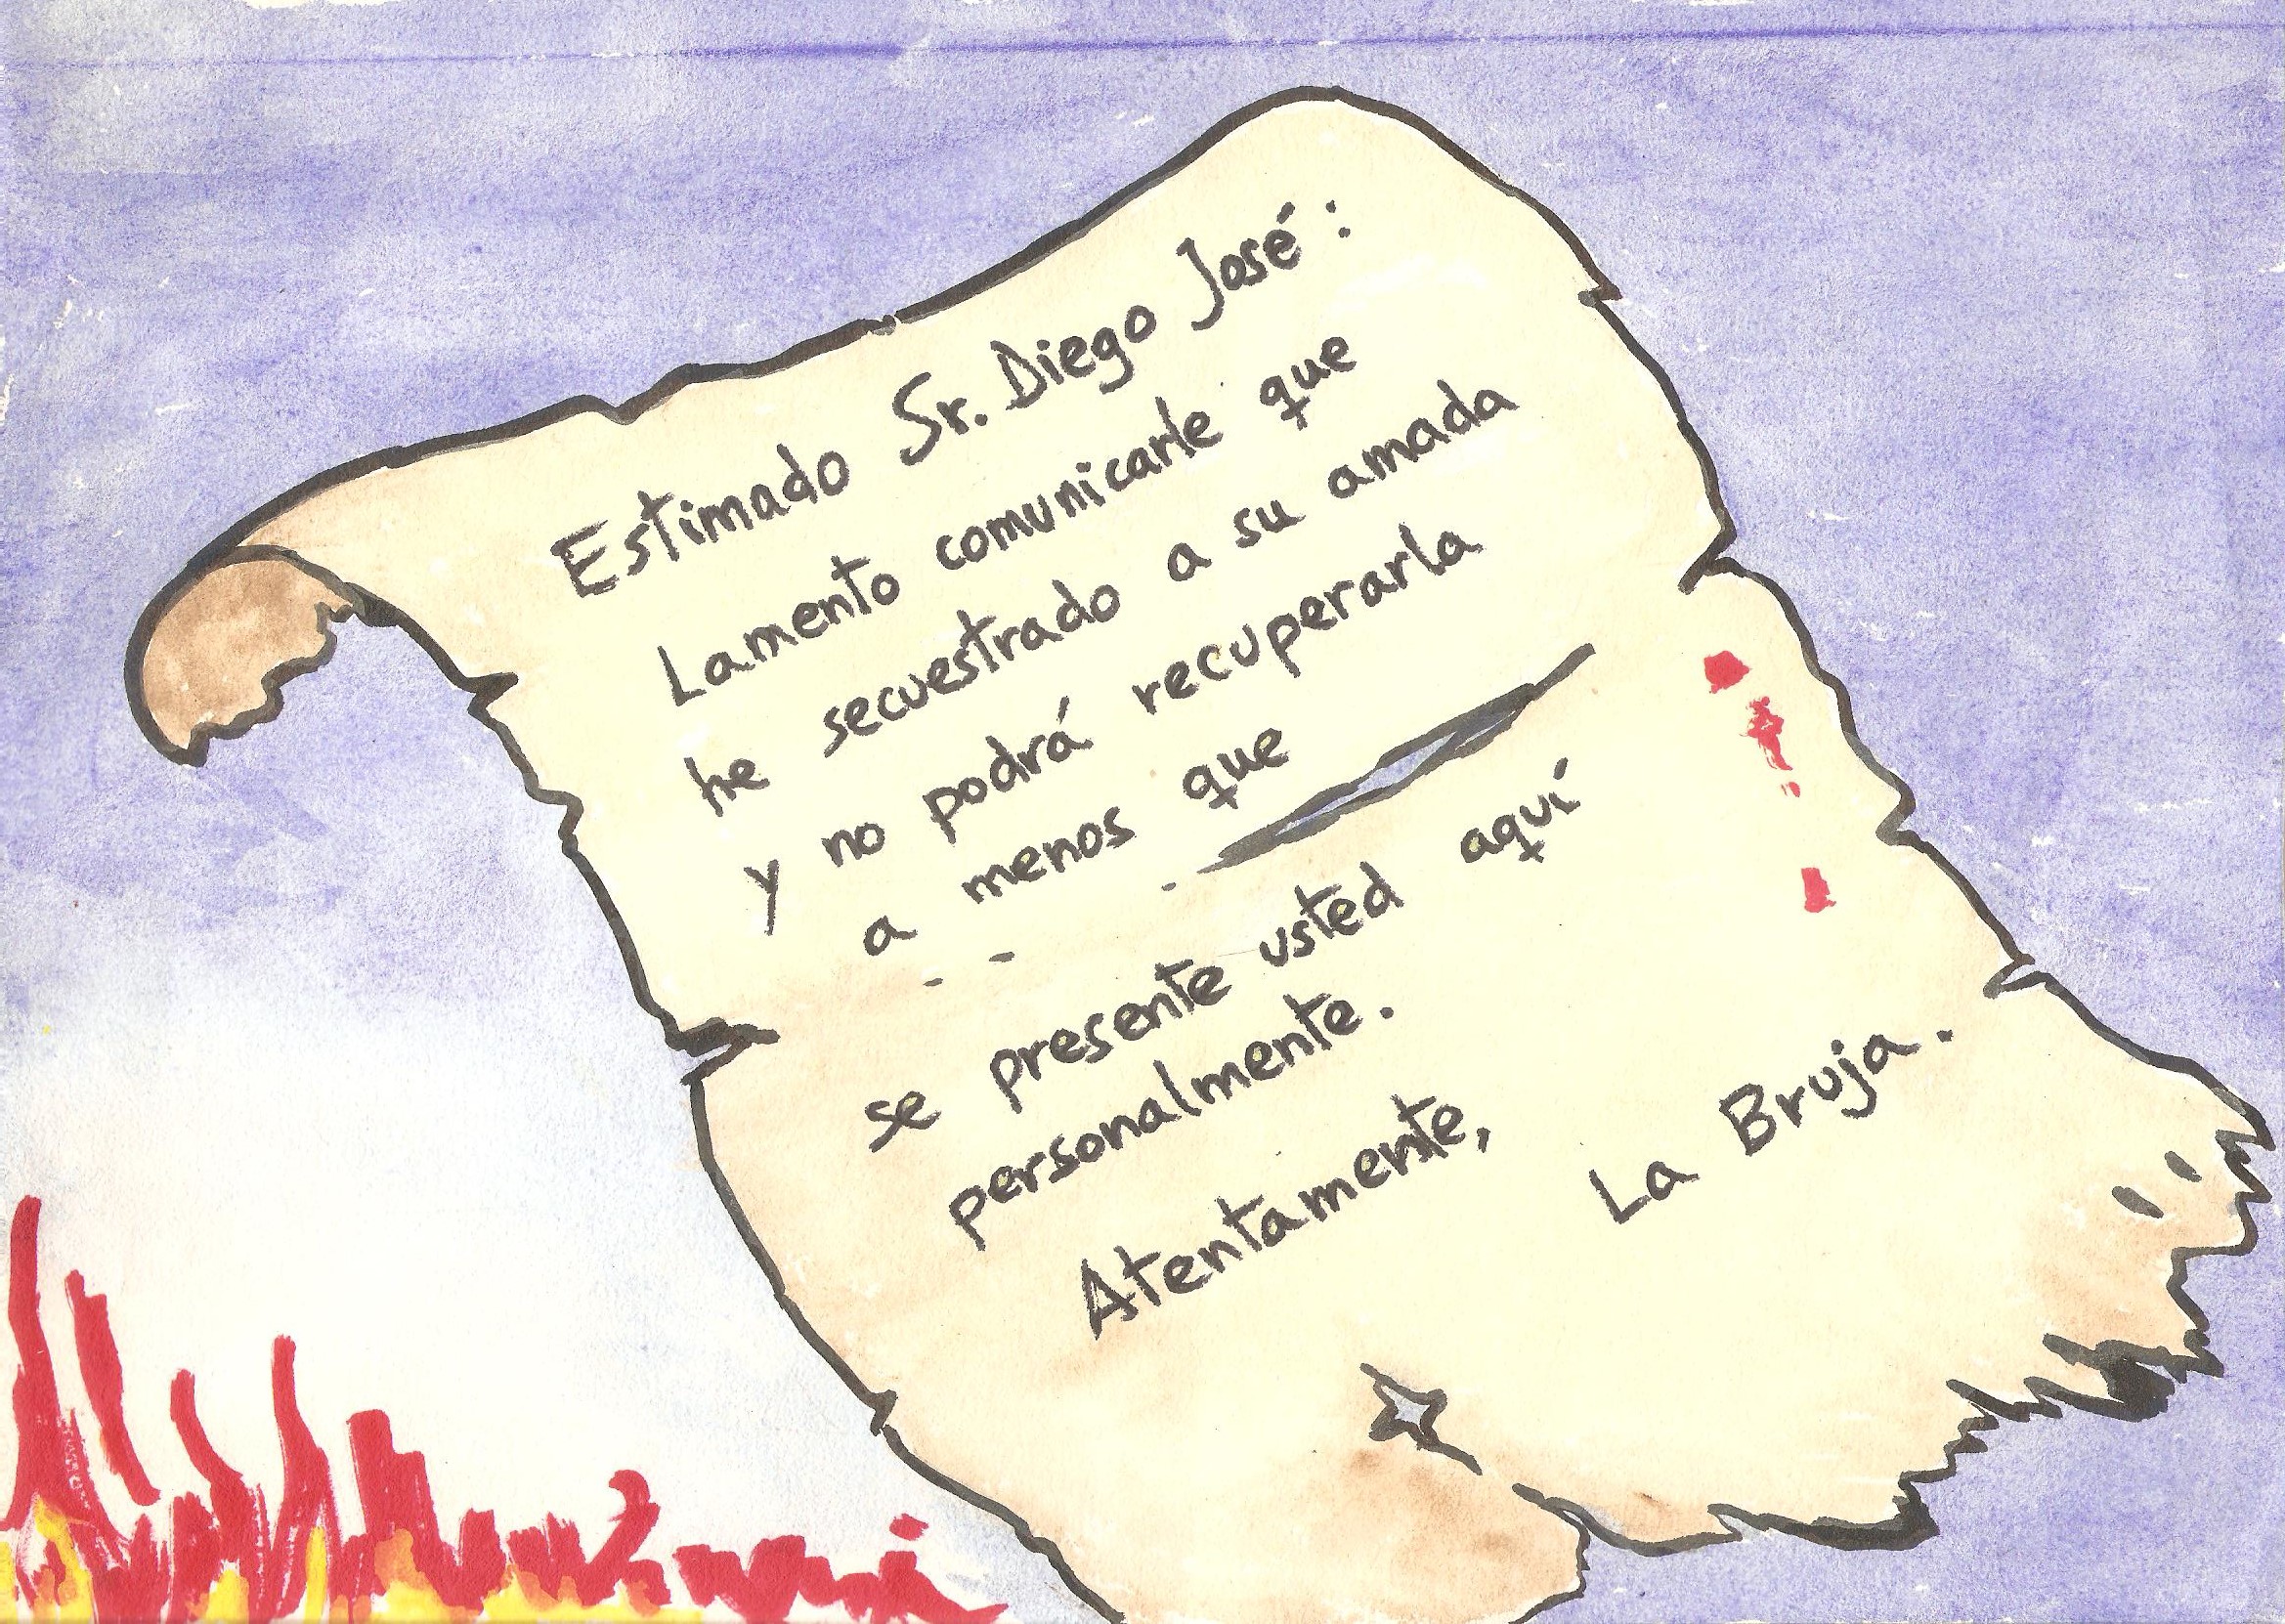 Estimado Sr. Diego José:
Lamento comunicarle que
he secuestrado a su amada
y no podrá recuperarla
a menos que
se presente usted aquí
personalmente.
Atentamente,
La Bruja.